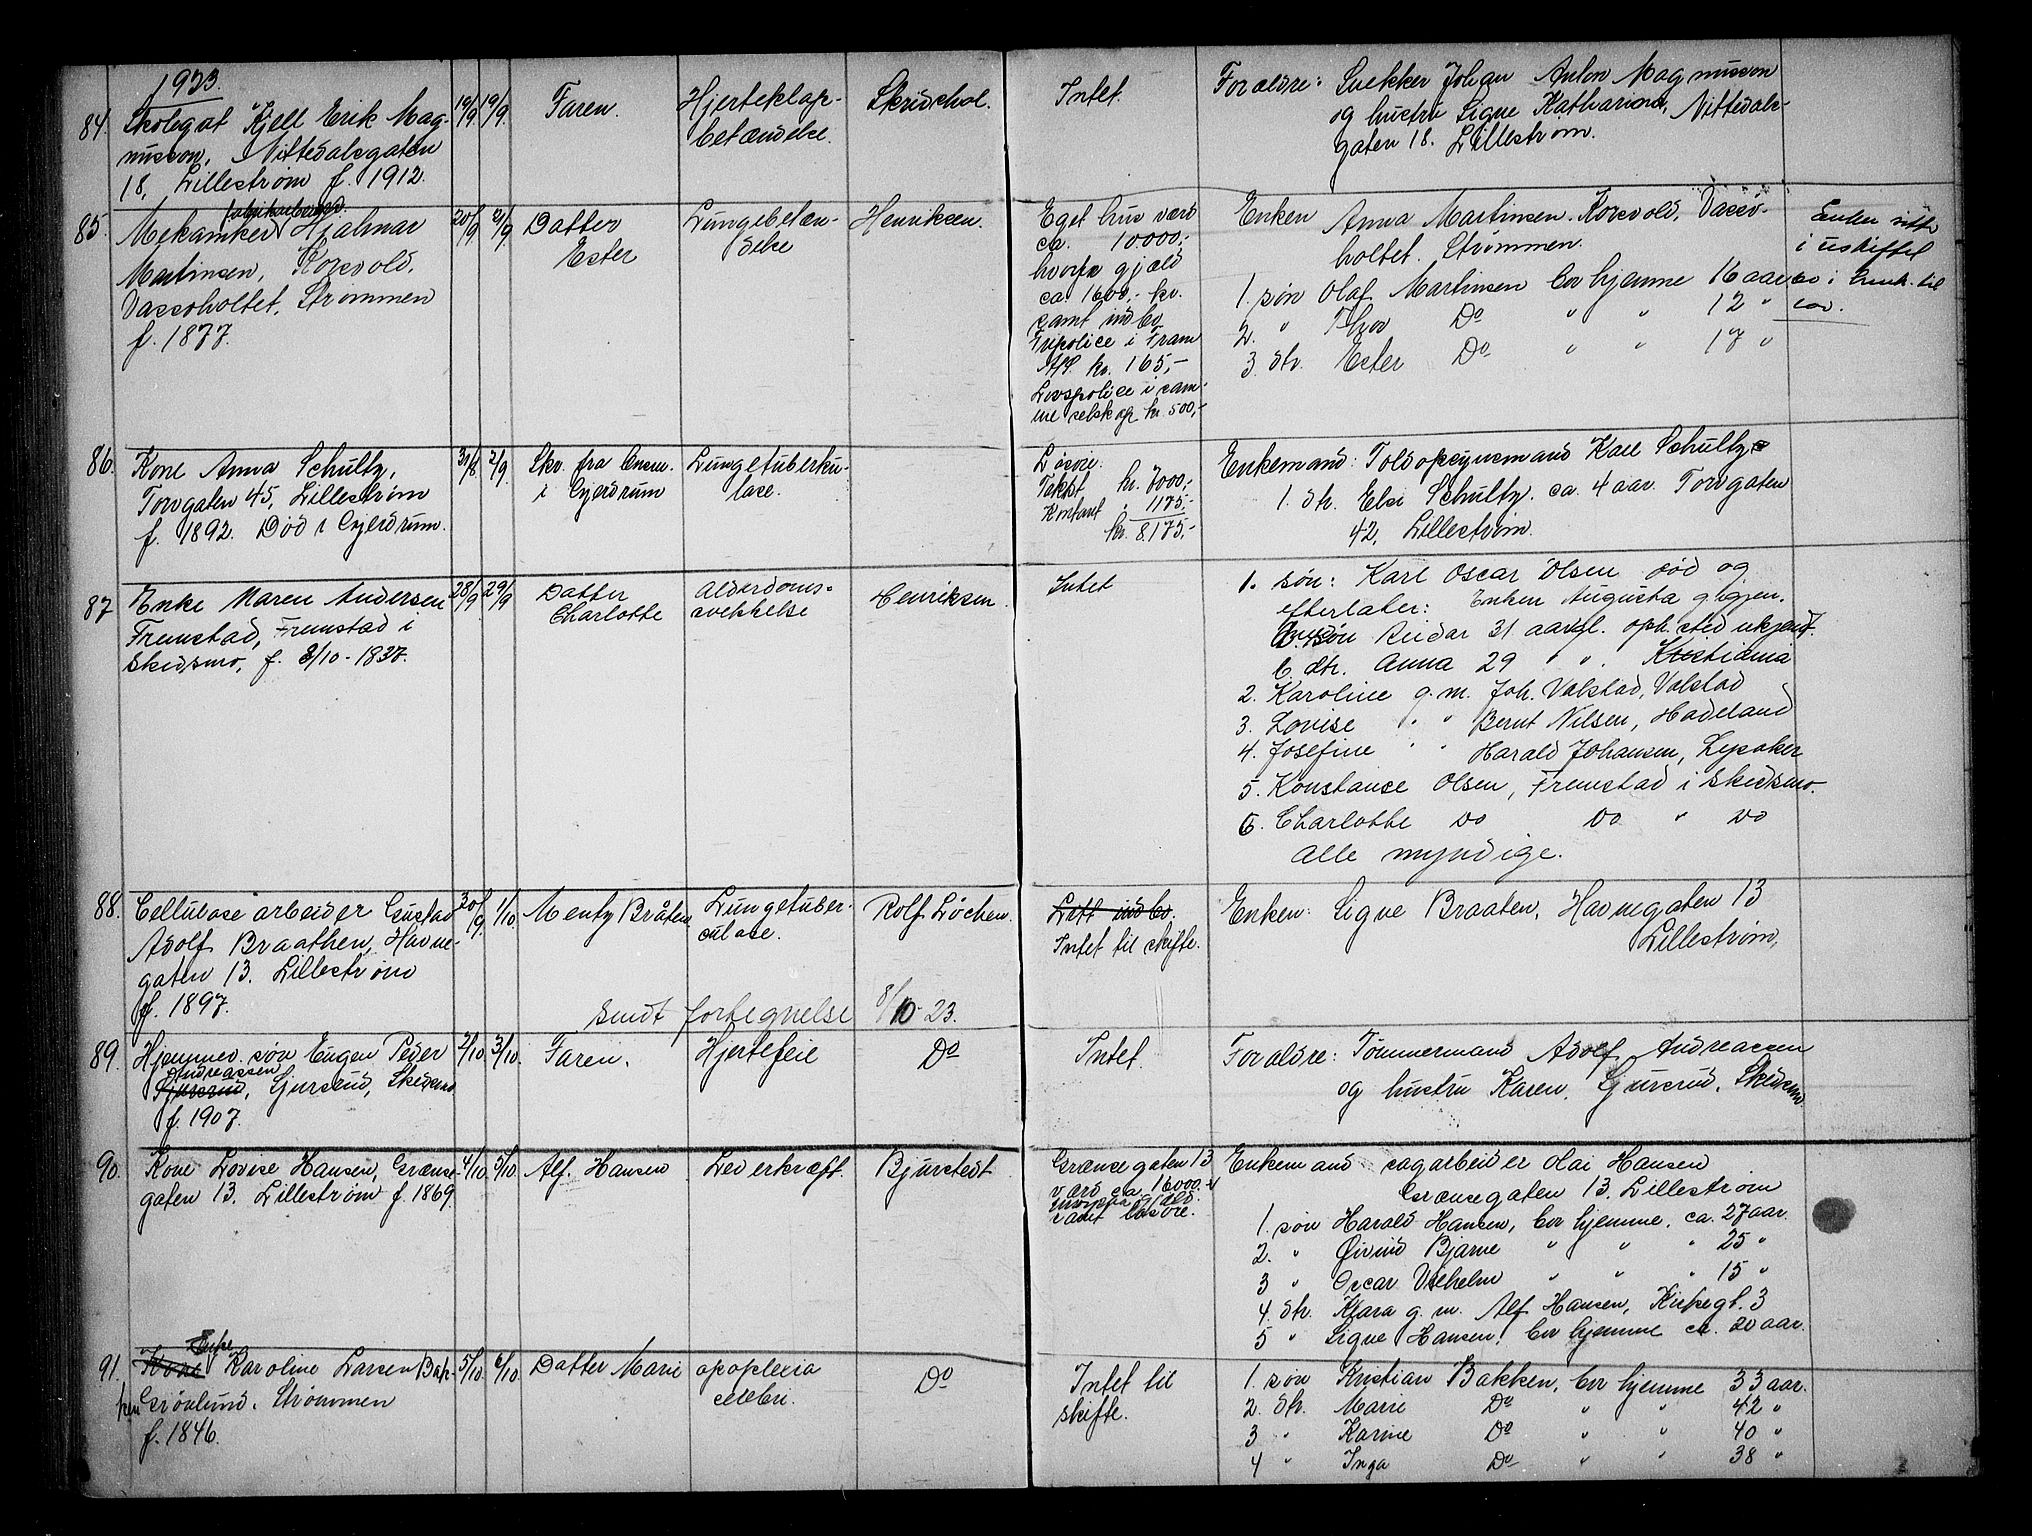 1923.
84. Skolegut Kjell Erik Mag-
nusson, Nittedalsgaten
18, Lillestrøm f. 1912.
19/9 19/9
Faren.
Hjerteklap-
betændelse.
Skridshol.
Intet.
Forældre: Snekker Johan Anton Magnusson
og hustru Signe Katharina, Nittedals-
gaten 18. Lillestrøm.
85. fabrikarbeider.
Mekaniker Hjalmar
Martinsen, Korsvold,
Vassoholtet, Strømmen
f. 1877.
20/9 21/9
Datter
Ester
Lungebetæn-
delse
Henriksen.
Eget hus værd
ca. 10000,-
hvorpaa gjæld
ca. 1600,- kr.
samt indbo
Fripolice i Fram
A/S. kr. 165,-
Livspolice i sam-
me selskap kr. 500,-
Enken Anna Martinsen. Korsvold, Vasso-
holtet. Strømmen.
1. søn Olaf Martinsen bor hjemme 16 aar
2. " Thor Do " " 12 "
3. dtr. Ester Do " " 17 "
Enken sitter
i uskiftet
bo i henh. til
lov.
86. Kone Anna Schultz,
Torvgaten 45, Lillestrøm
f. 1892. Død i Gjerdrum.
31/8 2/9.
Skr. fra lensm.
i Gjerdrum
Lungetuberku-
lose.
Løsøre.
Takst kr. 7000,-
Kontant " 1175,-
kr. 8175,-
Enkemand: Toldopsynsmand Karl Schultz
1. dtr. Elsi Schultz. ca. 4 aar. Torvgaten
42, Lillestrøm.
87 Enke Maren Andersen
Fremstad, Fremstad i
Skedsmo, f. 8/10-1837.
28/9 29/9
Datter
Charlotte
Alderdoms-
svekkelse
Henriksen.
Intet
1. søn: Karl Oscar Olsen død og
efterlater: Enken Augusta gl. gjen.
søn Reidar 31 aargl. oph.sted ukjendt.
b. dtr. Anna 29 " ". Kristiania
2. Karoline g.m. Joh. Valstad, Valstad
3. Lovise " " Bernt Nilsen, Hadeland
4. Josefine " " Harald Johansen, Lysaker
5. Konstanse Olsen, Fremstad i Skedsmo.
6. Charlotte do do " do
Alle myndige.
88. Cellulosearbeider Gustav
Adolf Braathen, Havne-
gaten 13. Lillestrøm
f. 1897.
30/9. 1/10.
Mentz Bråten.
Lungetuber-
culose.
Rolf Løchen.
Litt indbo.
Intet til skifte.
Enken: Signe Braaten, Havnegaten 13
Lillestrøm.
Sendt fortegnelse 8/10-23.
89. Hjemmev. søn Eugen Peder
Andreassen
Gjusrud, Gjusrud, Skedsmo
f. 1907.
2/10. 3/10.
Faren.
Hjertefeil
Do
Intet.
Forældre: Tømmermand Adolf Andreassen
og hustru Karen. Gjusrud. Skedsmo.
90. Kone Lovise Hansen, Grænse-
gaten 13. Lillestrøm f. 1869.
4/10 5/10.
Alf. Hansen
Leverkræft.
Bjurstedt.
Grænsegaten 13
værd ca. 16000.-
hvorpaa gjæld
samt løsøre.
Enkemand sagarbeider Olai Hansen
Grænsegaten 13. Lillestrøm
1. søn Harald Hansen, bor hjemme. ca. 27 aar.
2. " Øivind Bjarne " " " 25 "
3 " Oscar Vilhelm " " " 15 "
4. dtr. Klara g. m. Alf Hansen, Kirkegt. 3
5 " Signe Hansen, bor hjemme ca. 20 aar.
91. Enke
Kone Karoline Larsen Bak-
ken Grønlund. Strømmen
f. 1846.
5/10 6/10.
Datter Marie
apoplexia
celebri.
Do
Intet til
skifte.
1. søn Kristian Bakken, bor hjemme 33 aar.
2. dtr. Marie Do " " 42 "
3 " Karine Do " " 40 "
4 " Inga Do " " 38 "